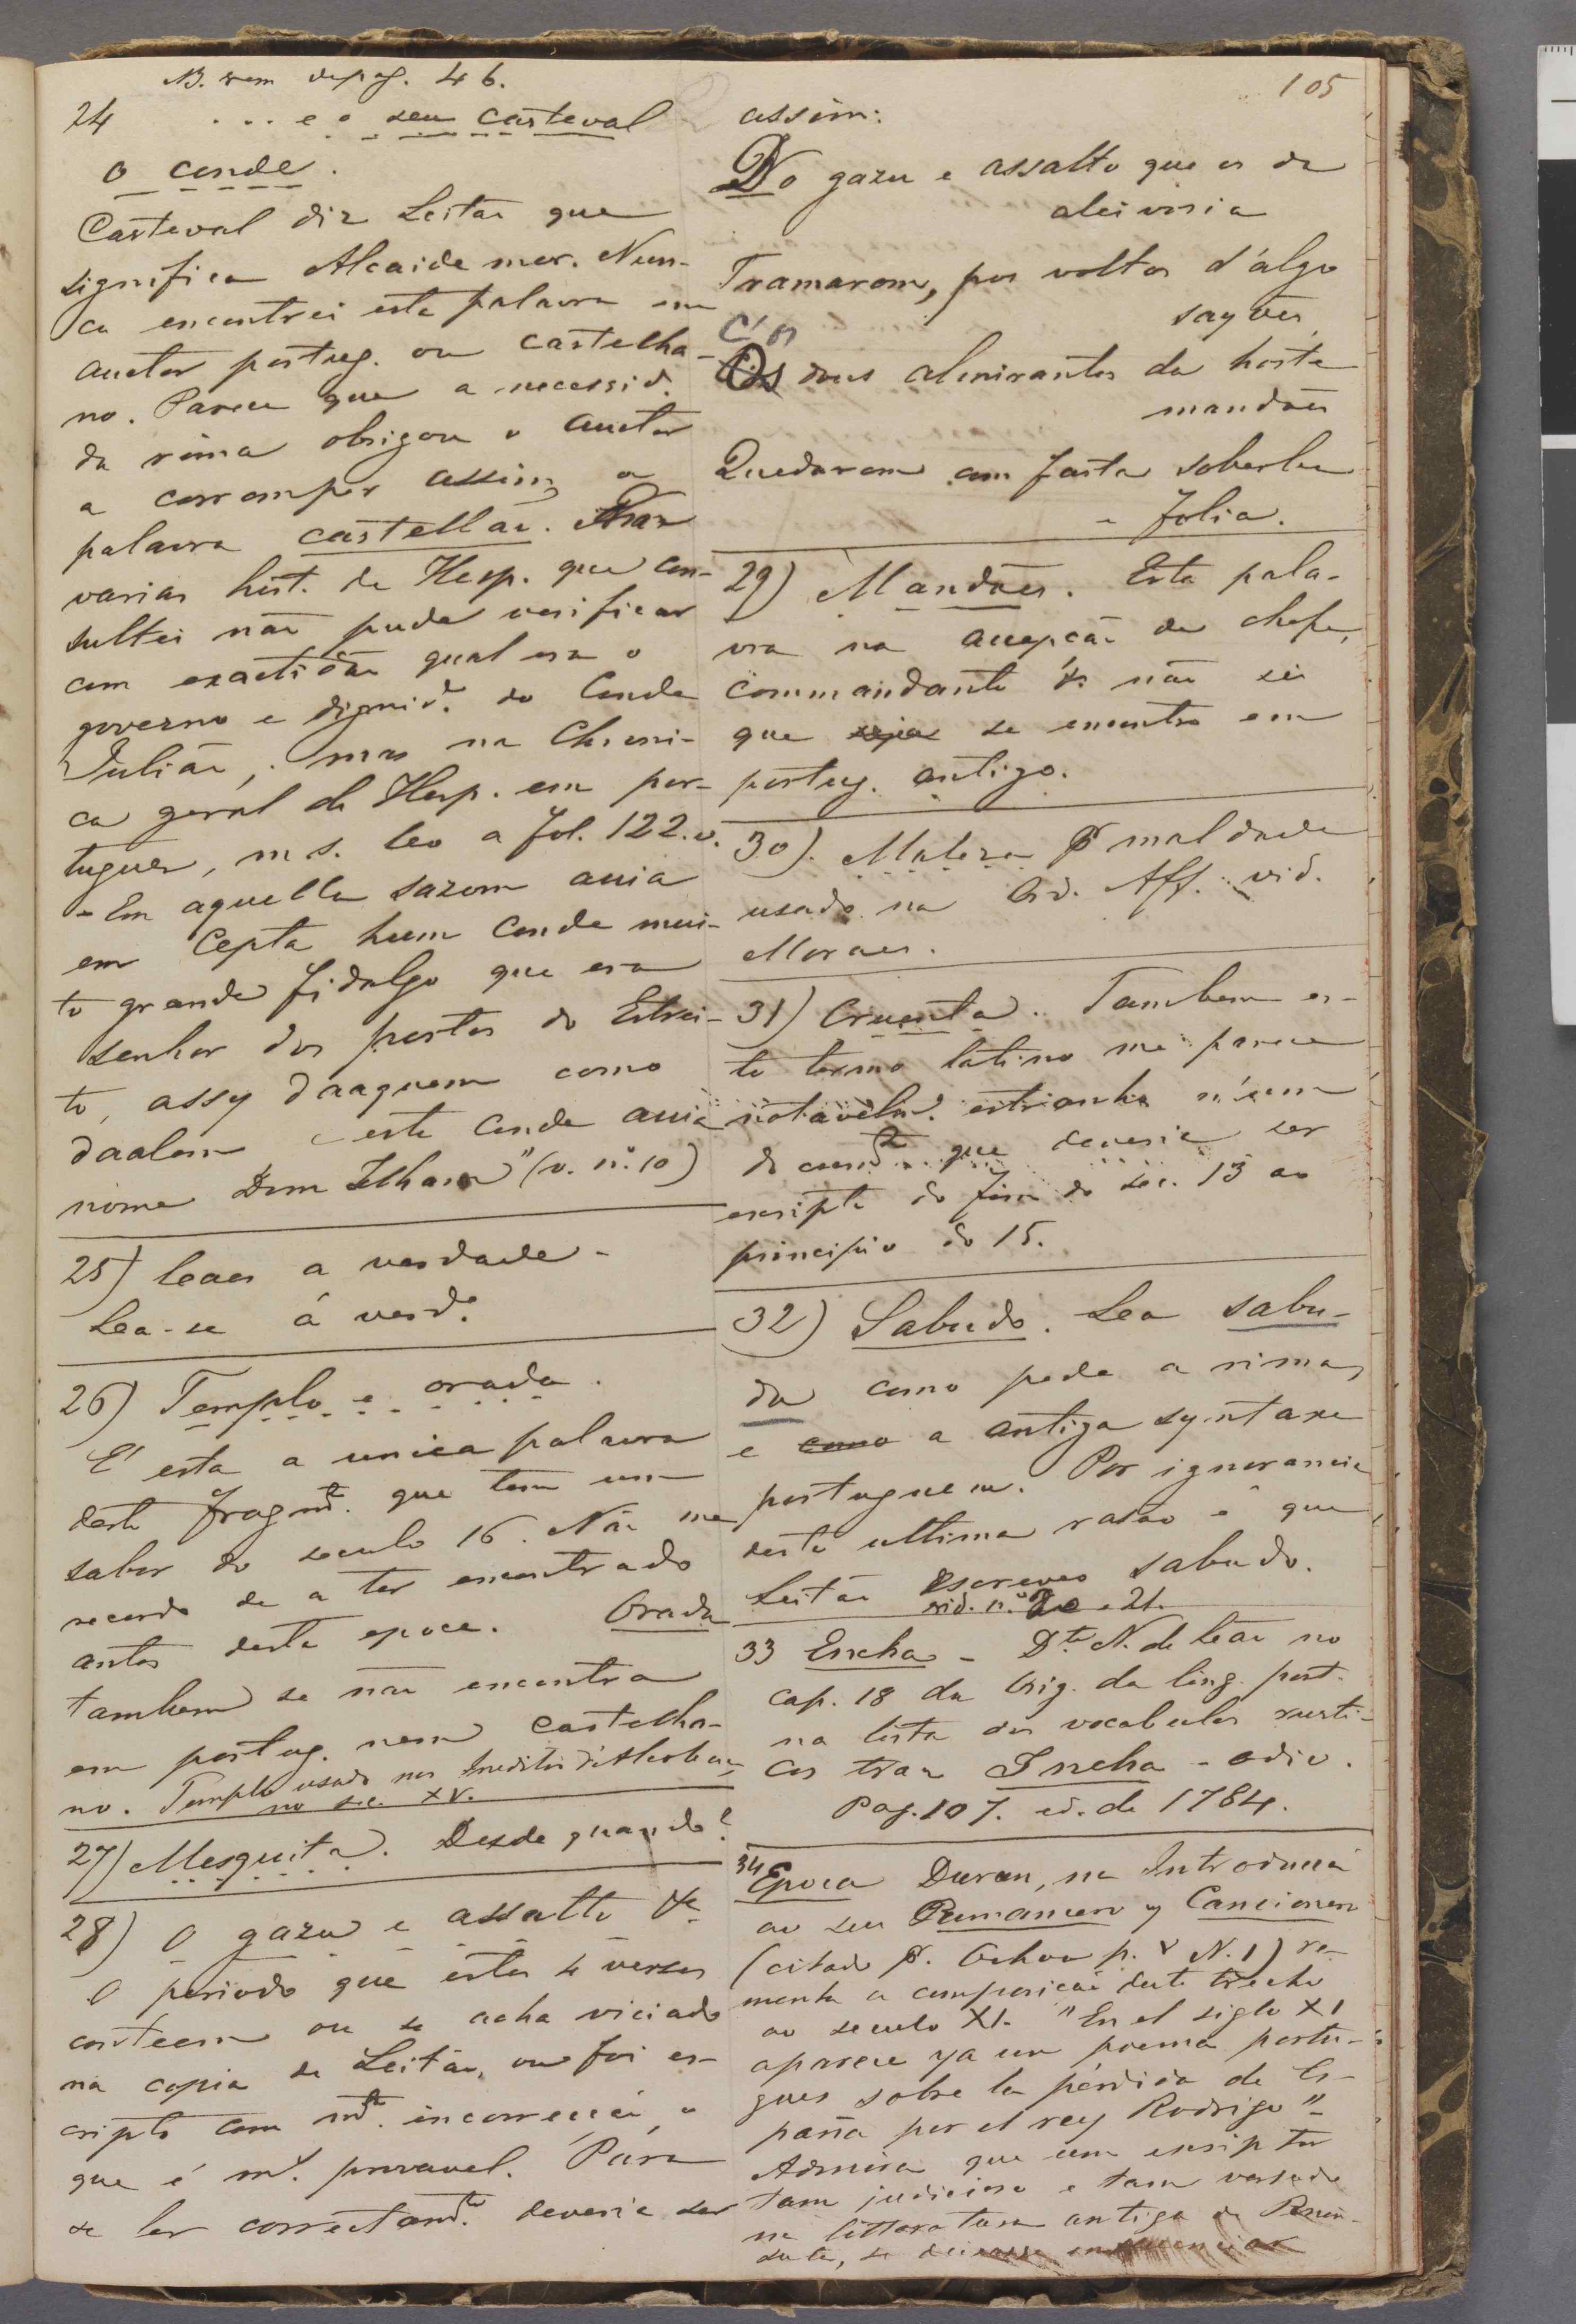 105
NB. vem de pag. 46.
24 ... e o seu casteval
o conde.
Casteval diz Leitão que
significa Alcaide mor. Nun-
ca encontrei esta palavra em
auctor portug. ou castelha-
no. Parece que a necessid.
da rima obrigou o auctor
a corromper assim a
palavra castellão. Nas
varias hist. de Hesp. que con-
sultei não pude verificar
com exactidão qual era o
governo e dignid.e do Conde
Julião; mas na Chroni-
ca geral de Hesp. em por-
tuguez, m s. leo a fol. 122. v.
- Em aquella sazom auia
em Cepta huum Conde mui-
to grande fidalgo que era
senhor dos portos do Estrei-
to, assy daaquem como
daalem e este conde auia
nome Dom Ilham" (v. nº 10)
25) leaes a verdade -
Lea-se á verd.e
26) Templo e orada.
E' esta a unica palavra
deste fragmto. que tem um
sabor do seculo 16. Não me
recordo de a ter encontrado
antes desta epoca. Orada
tambem se não encontra
em portug. nem castelha-
no. Templo usado nos Ineditos d'Alcobaça
no sec. XV.
27) Mesquita. Desde quando?
28) O gazu e assalto &c
O periodo que estes 4 versos
conteem ou se acha viciado
na copia de Leitão, ou foi es-
cripto com mta. incorrecção, o
que é mt. provavel. Para
se ler correctamte. deveria ser
assim:
No gazu e assalto que os da
aleivosia
Tramarom, por voltas d'algo
sayões,
C'os
Os dous almirantes da hoste
mandões
Quedarom com fasta soberba
e folia.
29) Mandões. Esta pala-
vra na accepção de chefe,
commandante &c não sei
que seja se encontre em
portug. antigo.
30). Maleza por maldade
usado na Ord. Aff. vid.
Moraes.
31) Cruenta. Tambem es-
te termo latino me parece
notavelmte. estranho n'um
documto. que deveria ser
escripto do fim do sec. 13 ao
principio do 15.
32) Sabudo. Lea sabu-
da como pede a rima,
e como a antiga syntaxe
portugueza. Por ignorancia
desta ultima rasão é que
Leitão escreveo sabudo.
vid. n.os 20 e 21.
33 Encha - D.te N. de Leão no
cap. 18 da Orig. da ling. port.
na lista dos vocabulos rusti-
cos traz Incha - odio.
Pag. 107. ed. de 1784.
34 Epoca Duran, na Introducção
ao seu Romancero y Cancionero
(citado por Ochoa p. V N. 1) re-
monta a composição deste trecho
ao seculo XI. "En el siglo XI
aparece ya un poema portu-
gues sobre la pérdida de Es-
paña por el rey Rodrigo"
Admira que um escriptor
tam judicioso e tam versado
na litteratura antiga da Penin-
sula, se deixasse